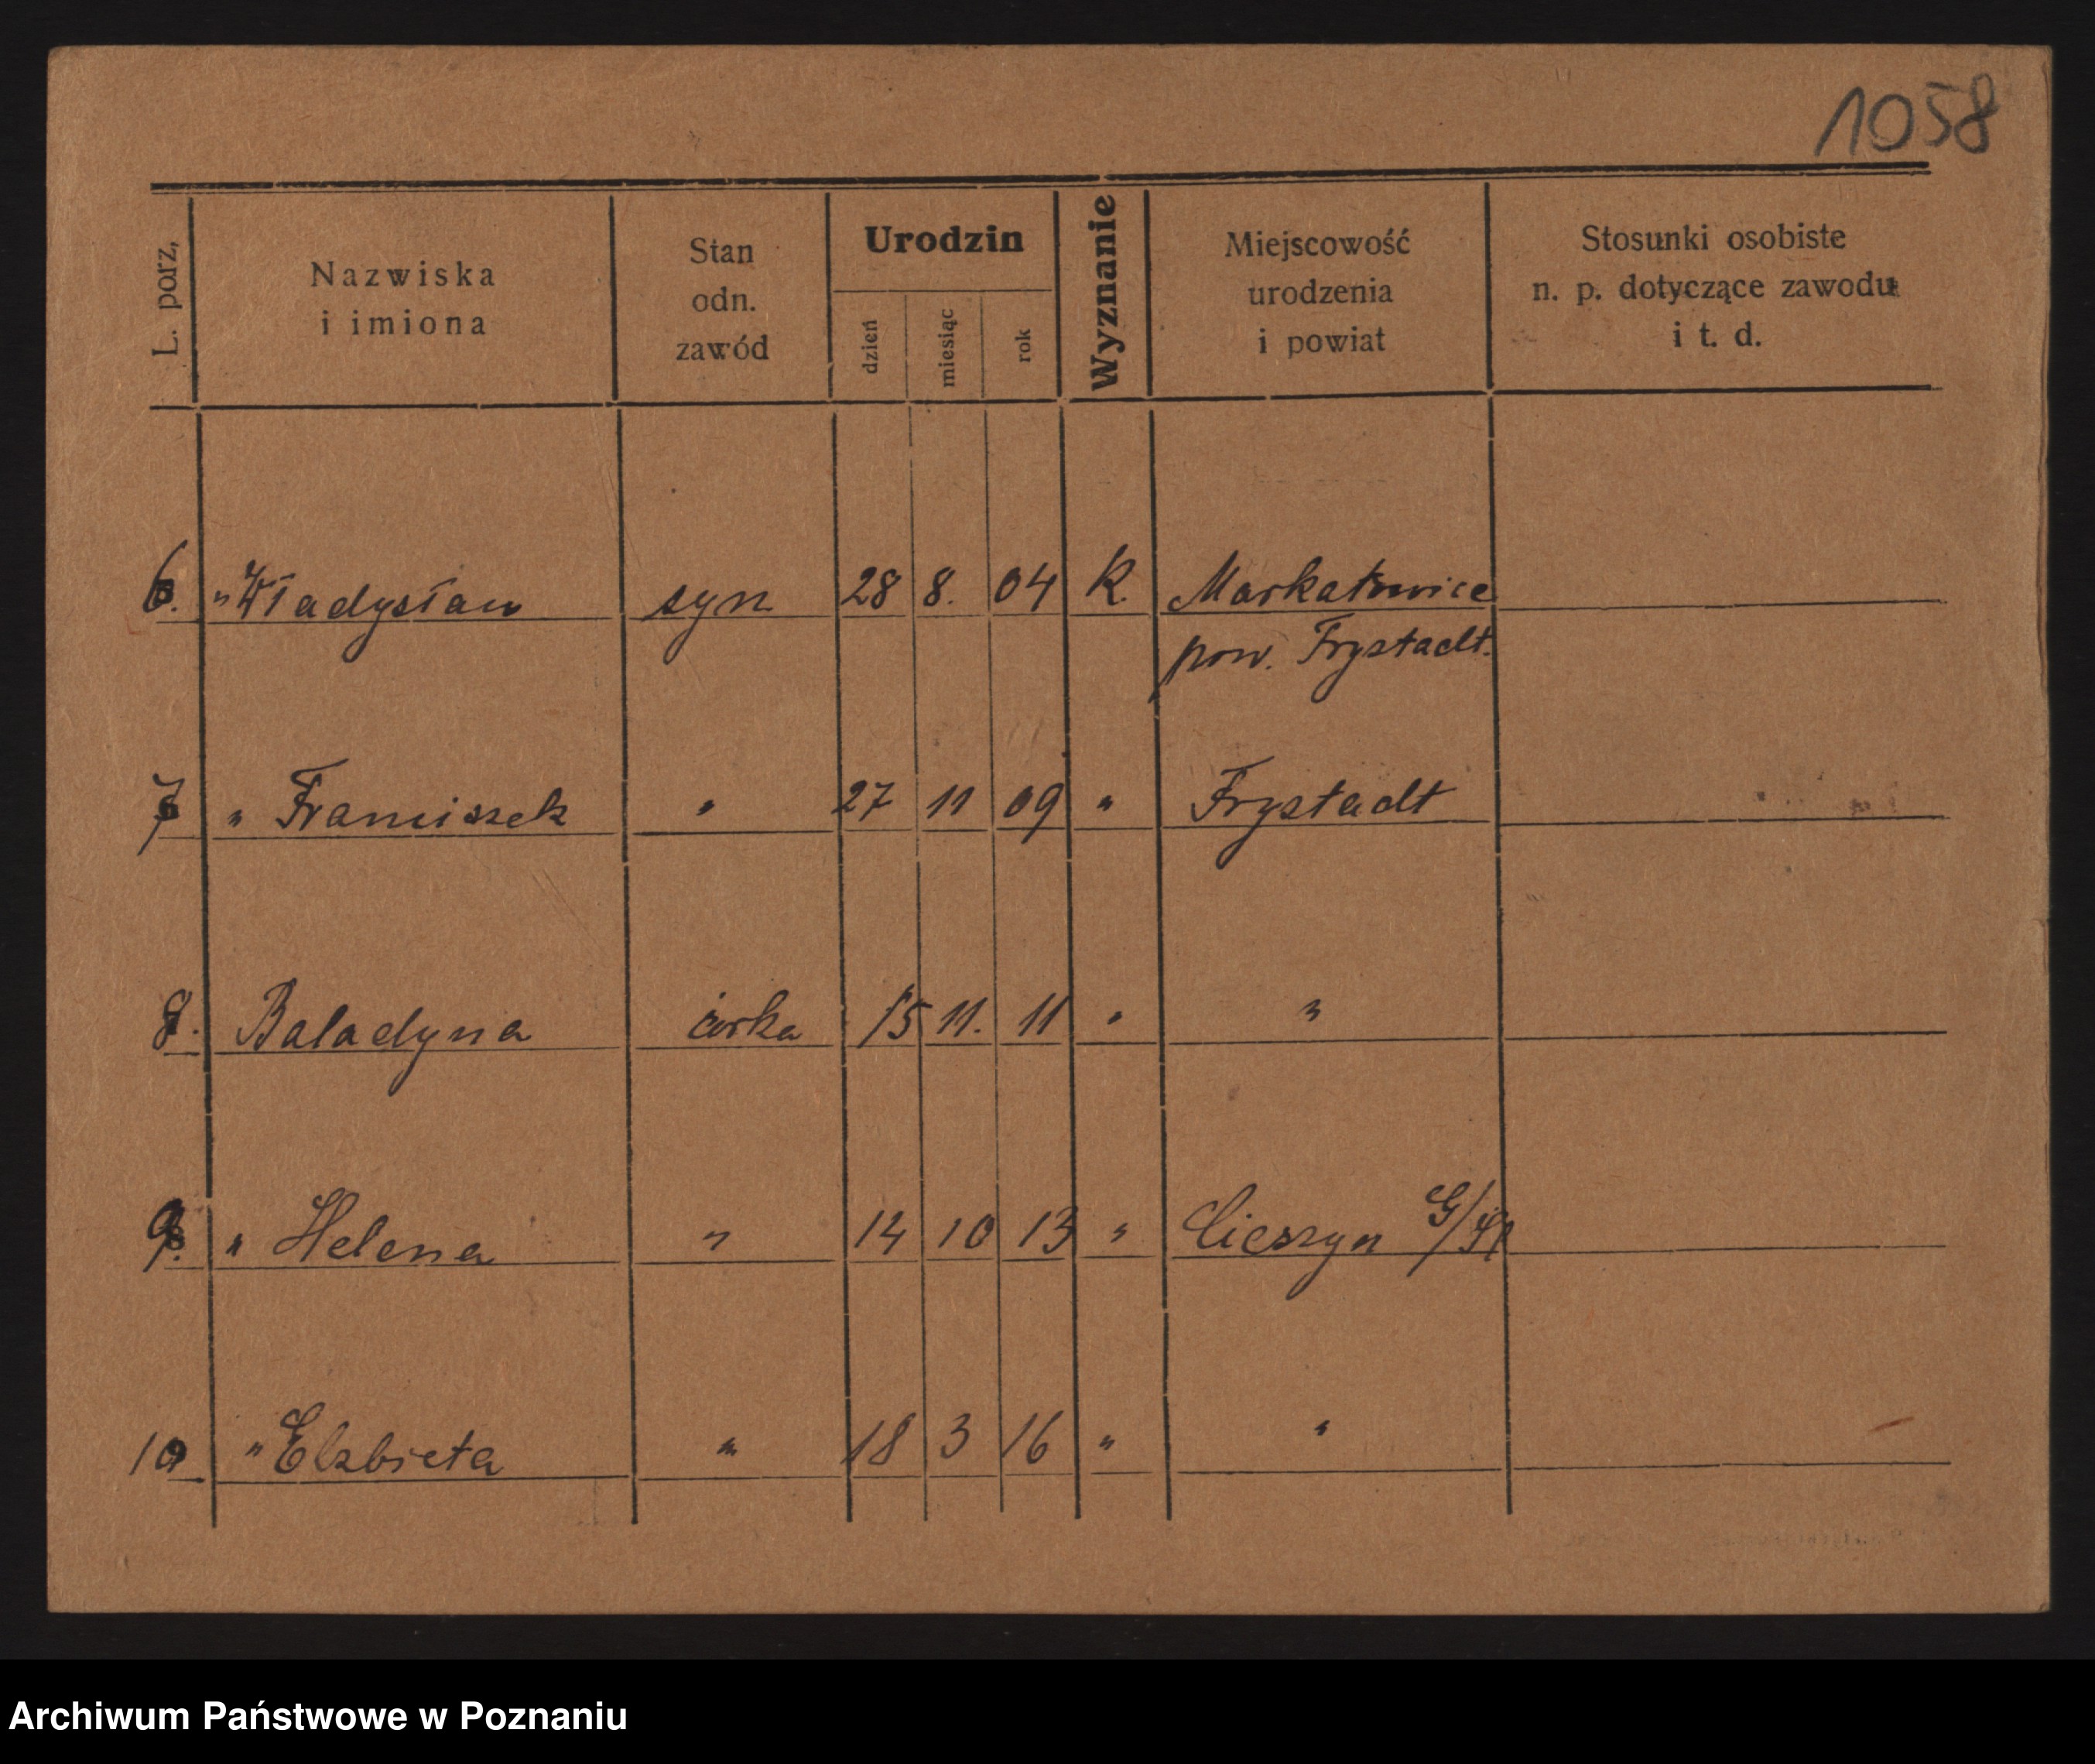 1058
L. porz,
Nazwiska
i imiona
Stan
odn.
zawód
Urodzin
dzień
miesiąc
rok
Wyznanie
Miejscowość
urodzenia
i powiat
Stosunki osobiste
n. p. dotyczące zawodu
i t. d.
6. " Władysław syn 28 8. 04 K. Markatowice
pow. Frystadt.
7 " Franciszek " 27 11 09 " Frystadt
8. Baladyna córka 15 11. 11 " "
9. " Helena " 14 10 13 " Cieszyn G/Śl
10 " Elzbieta " 18 3 16 " "
Archiwum Państwowe w Poznaniu